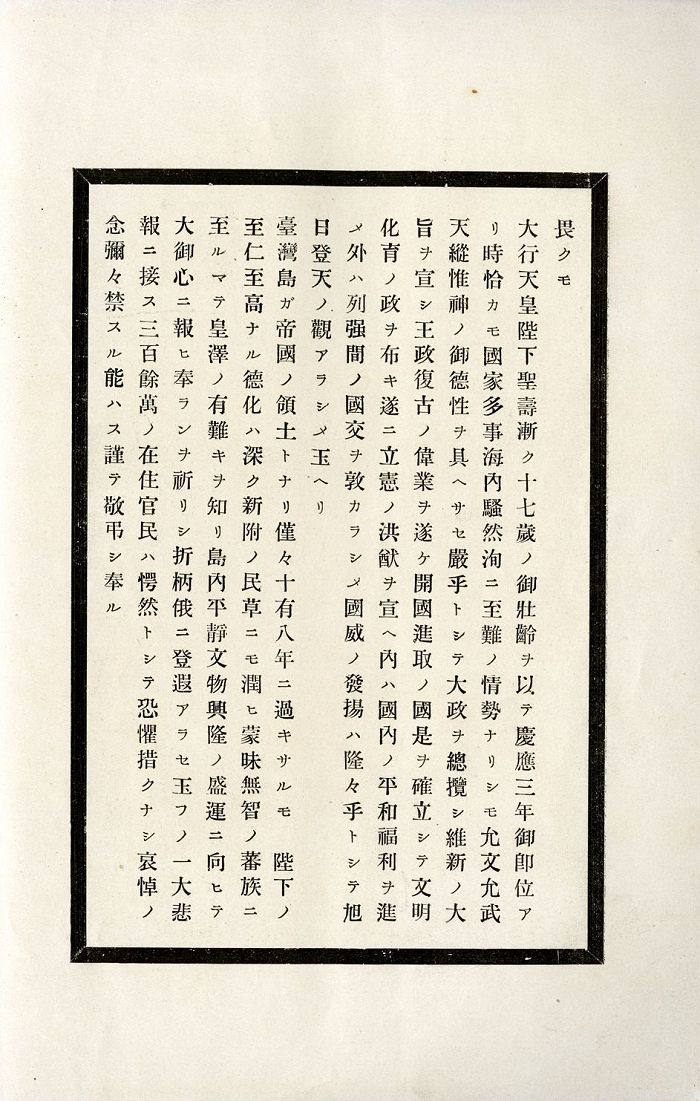 畏クモ
大行天皇陛下聖壽漸ク十七歲ノ御壯齡ヲ以テ慶應三年御卽位ア
リ時恰カモ國家多事海內騷然洵ニ至難ノ情勢ナリシモ允文允武
天縱惟神ノ御德性ヲ具ヘサセ嚴乎トシテ大政ヲ總攬シ維新ノ大
旨ヲ宣シ王政復古ノ偉業ヲ遂ケ開國進取ノ國是ヲ確立シテ文明
化育ノ政ヲ布キ遂ニ立憲ノ洪猷ヲ宣ヘ內ハ國內ノ平和福利ヲ進
メ外ハ列强間ノ國交ヲ敦カラシメ國威ノ發揚ハ隆々乎トシテ旭
日登天ノ觀アラシメ玉ヘリ
臺灣島ガ帝國ノ領土トナリ僅々十有八年ニ過キサルモ　陛下ノ
至仁至高ナル德化ハ深ク新附ノ民草ニモ潤ヒ蒙昧無智ノ蕃族ニ
至ルマテ皇澤ノ有難キヲ知リ島內平靜文物興隆ノ盛運ニ向ヒテ
大御心ニ報ヒ奉ランヲ祈リシ折柄俄ニ登遐アラセ玉フノ一大悲
報ニ接ス三百餘萬ノ在住官民ハ愕然トシテ恐懼措クナシ哀悼ノ
念彌々禁スル能ハス謹テ敬弔シ奉ル